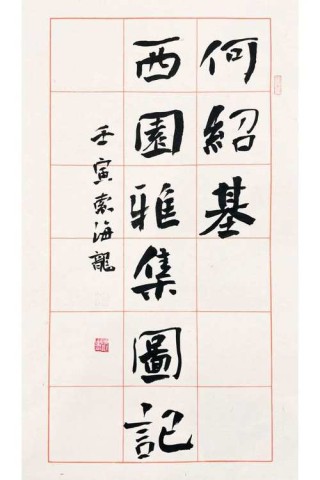 何紹基
西園雅集圖記
壬寅袁海龍